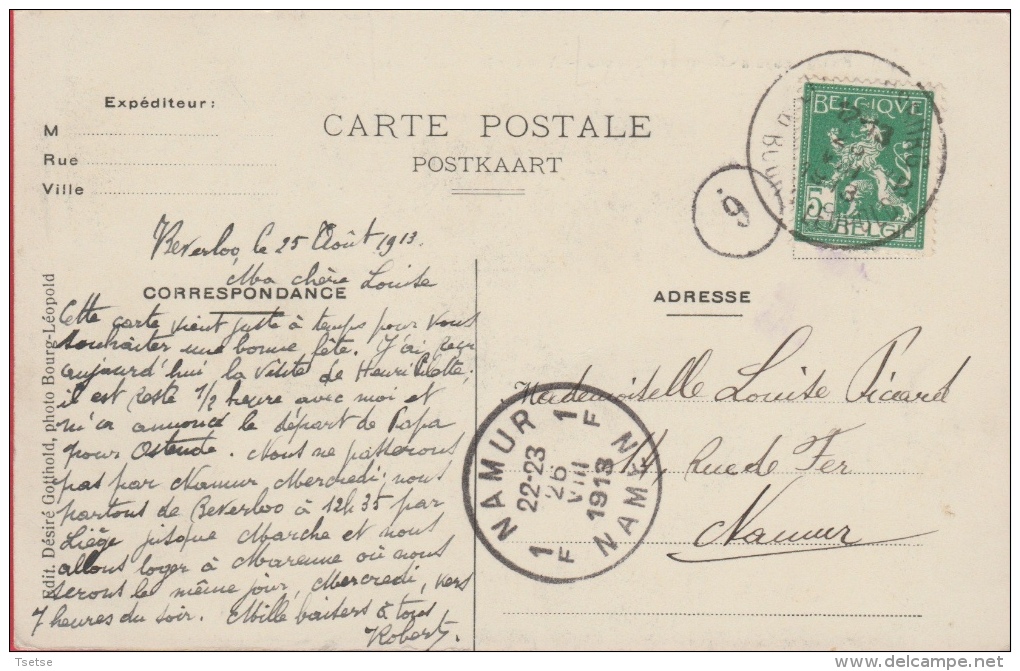 Expéditeur:
M
Rue
Ville
CARTE POSTALE
POSTKAART
BELGIQUE
5c
BELGIE
9
Beverloo, le 25 Août 1913.
Ma chère Louise
CORRESPONDANCE
Cette carte vient juste à temps pour vous
souhaiter une bonne fête. J'ai reçu
aujourd'hui la visite de Henri
il est resté 1/2 heure avec moi et
m'a annoncé le départ de Papa
pour Ostende. Nous ne passerons
pas par Namur Mercredi; nous
partons de Beverloo à 12h35 par
Liège jusque Marche et nous
allons loger à Marenne où nous
serons le même jour, Mercredi, vers
7 heures du soir. Mille baisers à tous
Robert.
Edit. Désiré Gotthold, photo Bourg-Léopold
ADRESSE
Mademoiselle Louise Picard
rue de Fer
Namur
NAMUR 1 F
22-23
26
VIII
1913
1 F NAMEN
Tsetse
delcampe.net